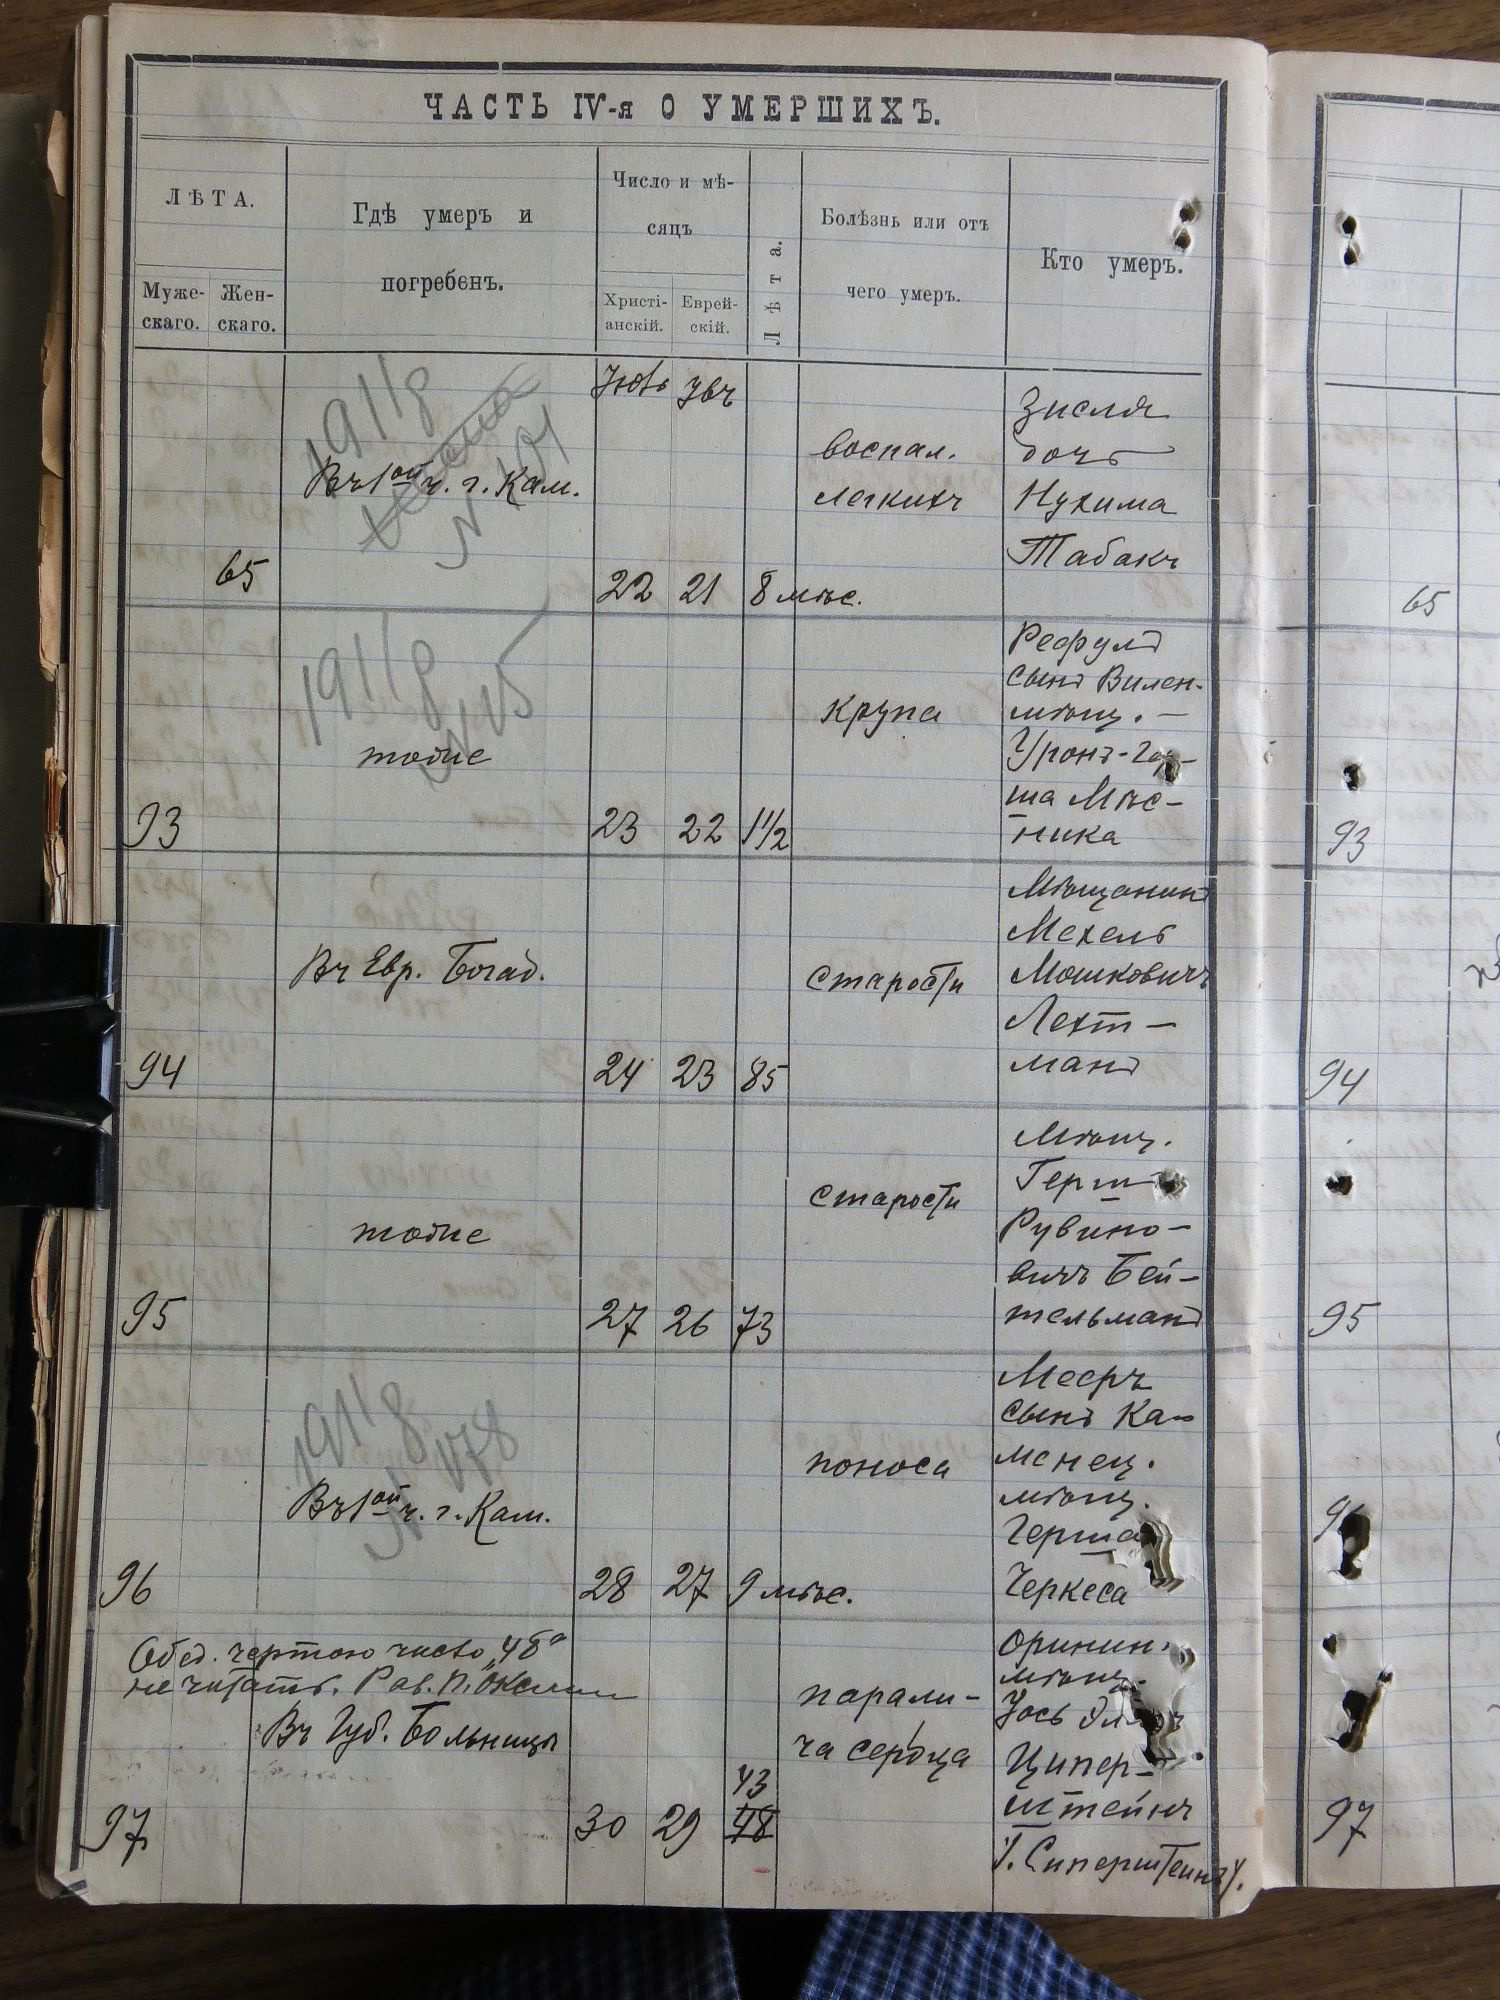 ЧАСТЬ IV-я О УМЕРШИХЪ.
ЛѢТА.
Муже-
скаго.
Жен-
скаго.
Гдѣ умеръ и
погребенъ.
Число и мѣ-
сяцъ
Христі-
анскій.
Еврей-
скій.
Лѣта.
Болѣзнь или отъ
чего умеръ.
Кто умеръ.
1911 г
Въ 1ой ч. г. Кам.
65
22
21
8 мѣс.
воспал.
легкихъ
Зисля
дочь
Нухима
Табакъ
65
1911 г
тоже
93
23
22
1 1/2
крупа
Рефулъ
сынъ Вилен.
мѣщ. -
ша Мѣс-
ника
93
Въ Евр. Богад.
94
24
23
85
старости
Мѣщанинъ
Мехель
Мошковичъ
Лехт-
манъ
94
тоже
95
27
26
73
старости
Мѣщ.
Герш
Рувино-
вичъ Бей-
тельманъ
95
1911 г
N 178
Въ 1ой ч. г. Кам.
96
28
27
9 мѣс.
поноса
Мееръ
сынъ Ка-
менец.
мѣщ.
Герша
Черкеса
Обед. чертою число „48"
не читать. Рав. П.
Въ Губ. Больницы
97
30
29
43
48
парали-
ча сердца
Оринин.
мѣщ.
Іось
Ципер-
штейнъ
Сиперштейнъ).
97